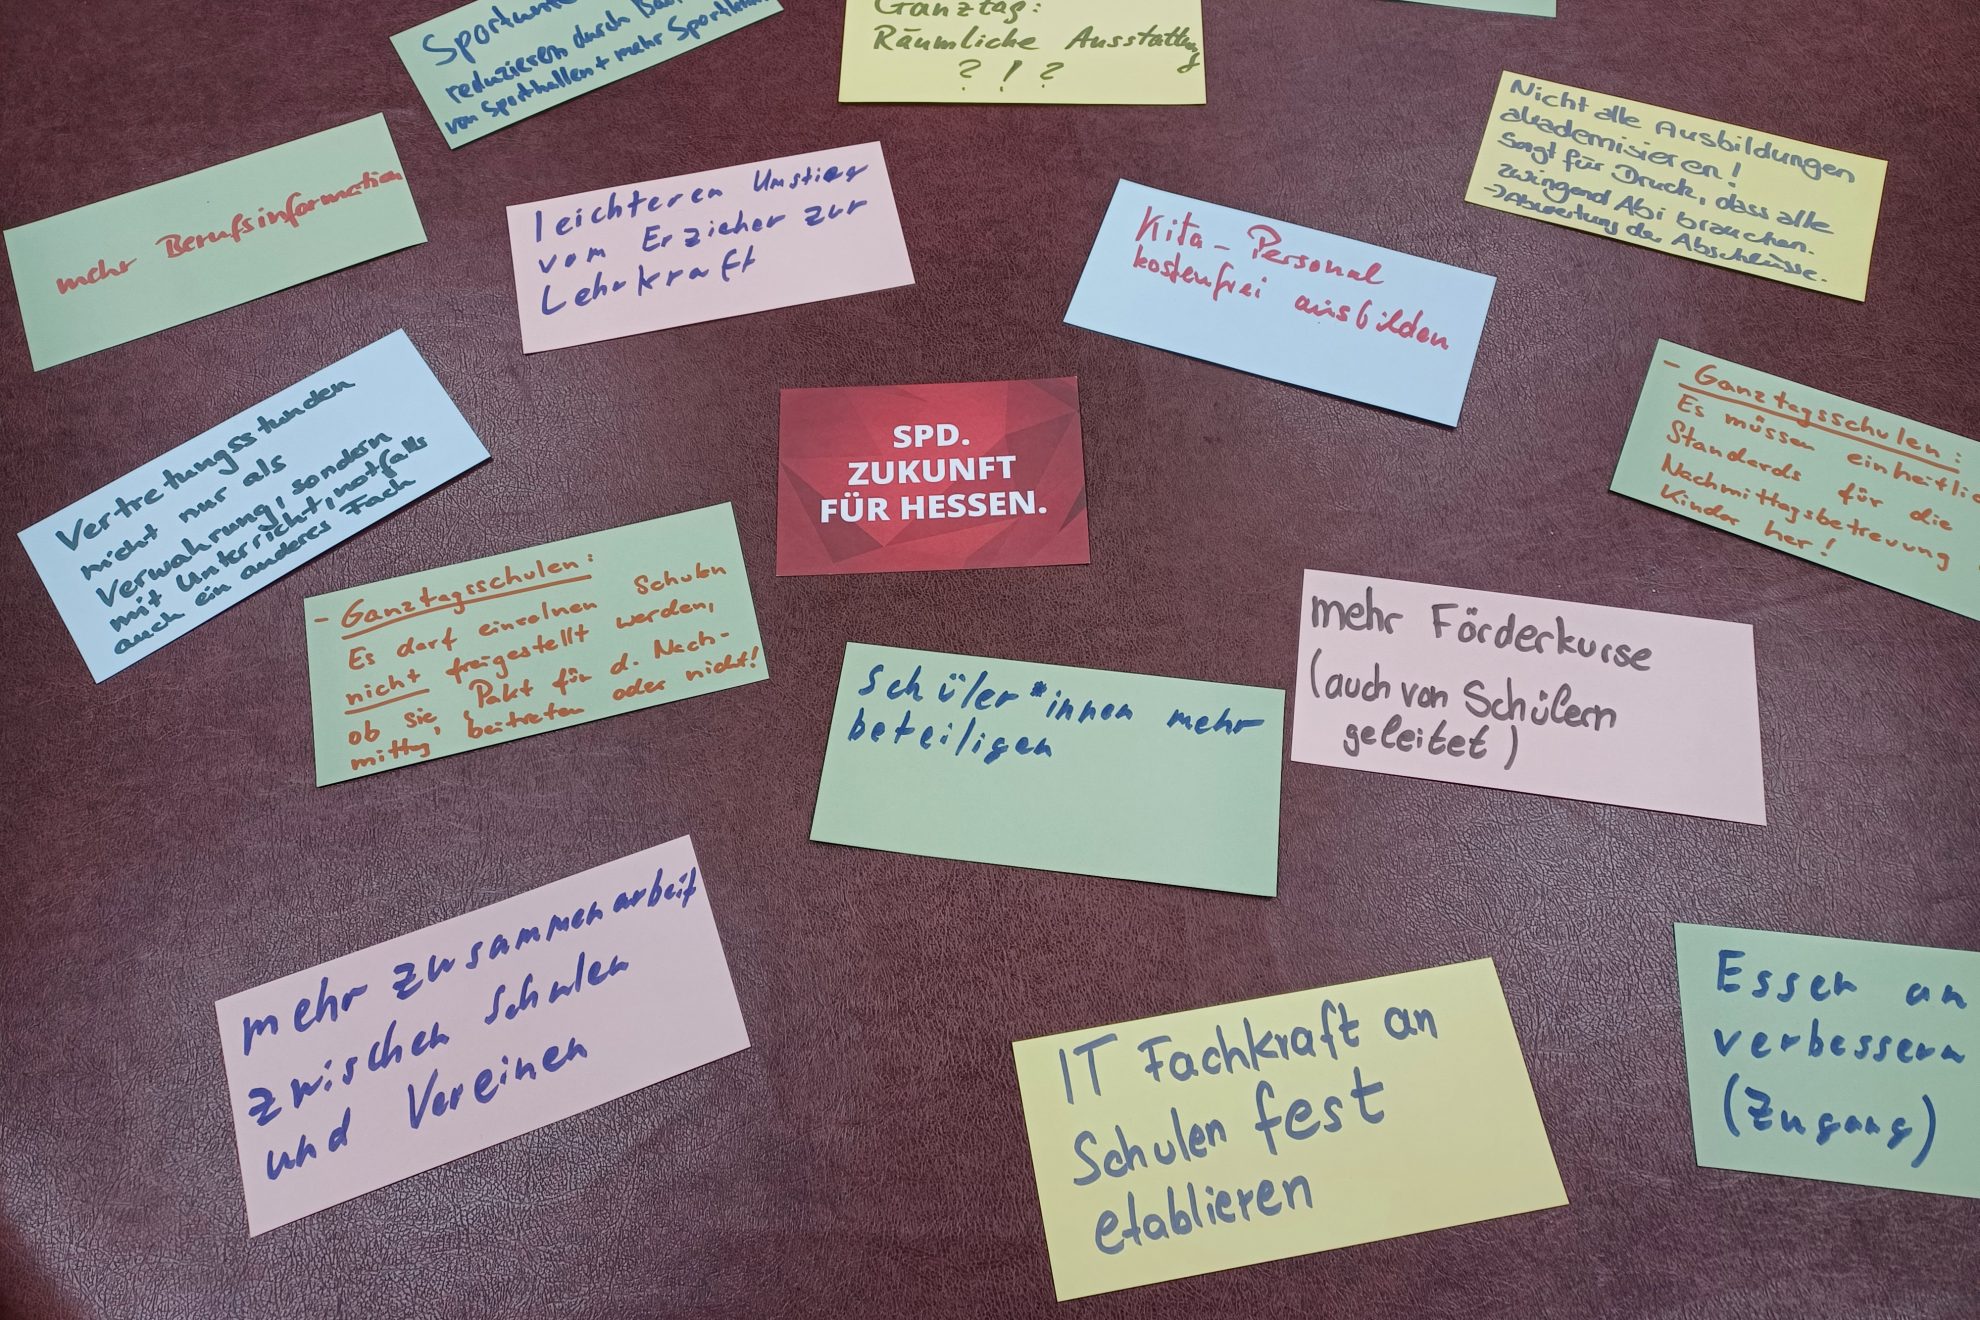 reduzieren durch
von Sporthallen + mehr
Ganztag:
Räumliche Ausstattung
? ! ?
Nicht alle Ausbildungen
akademisieren!
sorgt für Druck, dass alle
zwingend Abi brauchen.
→ Abwertung der Abschlüsse.
mehr Berufsinformation
leichteren Umstieg
vom Erzieher zur
Lehrkraft
Kita-Personal
kostenfrei ausbilden
Vertretungsstunden
nicht nur als
Verwahrung, sondern
mit Unterricht, notfalls
auch ein anderes Fach
SPD.
ZUKUNFT
FÜR HESSEN.
- Ganztagsschulen:
Es müssen
Standards für die
Nachmittagsbetreuung
Kinder her!
- Ganztagsschulen:
Es darf einzelnen Schulen
nicht freigestellt werden,
ob sie "Pakt für d. Nach-
mittag" beitreten oder nicht!
Schüler*innen mehr
beteiligen
mehr Förderkurse
(auch von Schülern
geleitet)
mehr zusammenarbeit
zwischen Schulen
und Vereinen
IT Fachkraft an
Schulen fest
etablieren
Essen an
verbessern
(Zugang)